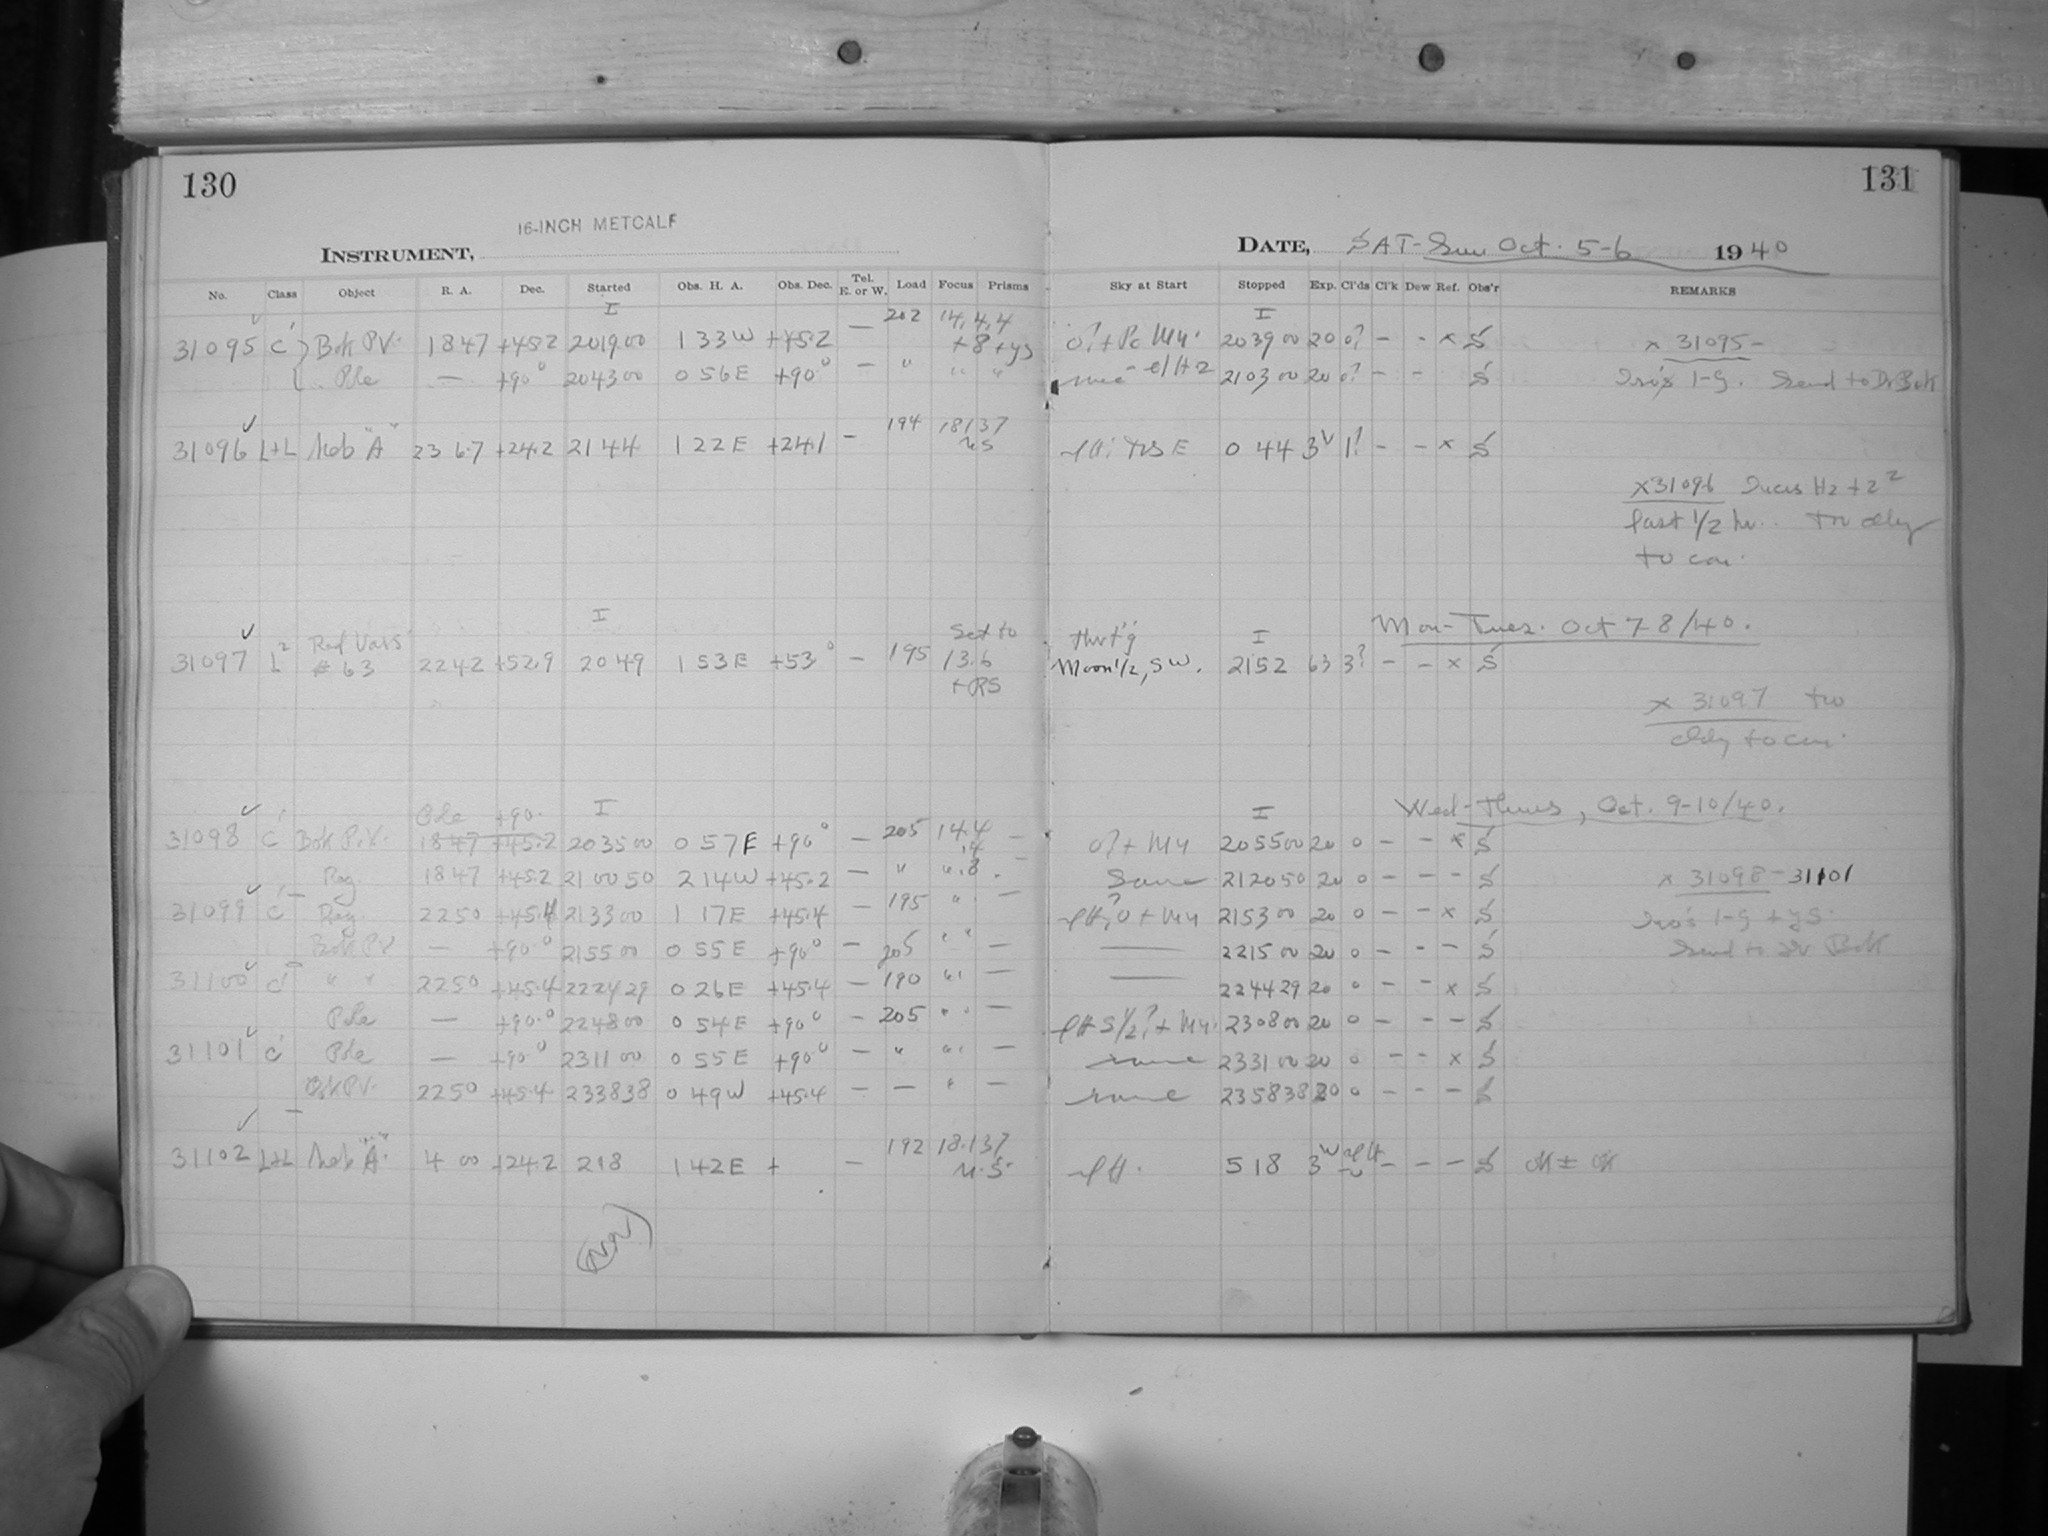 130
131
16-INCH METCALF
INSTRUMENT,
DATE, SAT-Sun Oct. 5-6 1940
No. Class Object R. A. Dec. Started Obs. H. A. Obs. Dec. Tel. E. or W. Load Focus Prisms Sky at Start Stopped Exp. Cl'ds Cl'k Dew Ref. Obs'r REMARKS
I I
31095 C' Bok P.V. 1847 +45.2 201900 133W +45.2 — 202 14.4.4 +8+ys 203900 20 0? – – x S x 31095 –
Pole — +90° 204300 056E +90° — " " " 210300 20 0? – – S Send to Dr Bok
31096 L+L Neb "A" +24.2 2144 122E +24.1 – 194 0 44 1? – – x S
x31096
last 1/2 hr.
I I Mon-Tues. Oct 7-8/40.
31097 L² Red Vars # 63 2242 +52.9 2049 153E +53° – 195 Set to 13.6 +RS Moon 1/2, SW. 2152 63 3? – – x S
x 31097
Pole +90. I I Wed-Thurs, Oct. 9-10/40.
31098 C' Bok P.V. 1847 +45.2 203500 057E +90° — 205 14.4 .4 – 205500 20 0 – – x S
1847 +45.2 210050 214W +45.2 – " ".8 – Same 212050 20 0 – – – S x 31098 – 31101
31099 C' 2250 +45.4 213300 117E +45.4 – 195 " – 215300 20 0 – – x S
Bok PV — +90.° 215500 055E +90° – 205 " " – — 221500 20 0 – – – S Send to Dr Bok
31100 C' " " 2250 +45.4 222429 026E +45.4 – 190 " – — 224429 20 0 – – x S
Pole — +90.° 224800 054E +90° – 205 " " – 230800 20 0 – – – S
31101 C' Pole — +90° 231100 055E +90° – " " – same 233100 20 0 – – x S
Bok P.V. 2250 +45.4 233838 049W +45.4 – – " – same 235838 20 0 – – – S
31102 L+L Neb "A" 4 00 +24.2 218 142E + – 192 18.137 518 – – – S
(over)